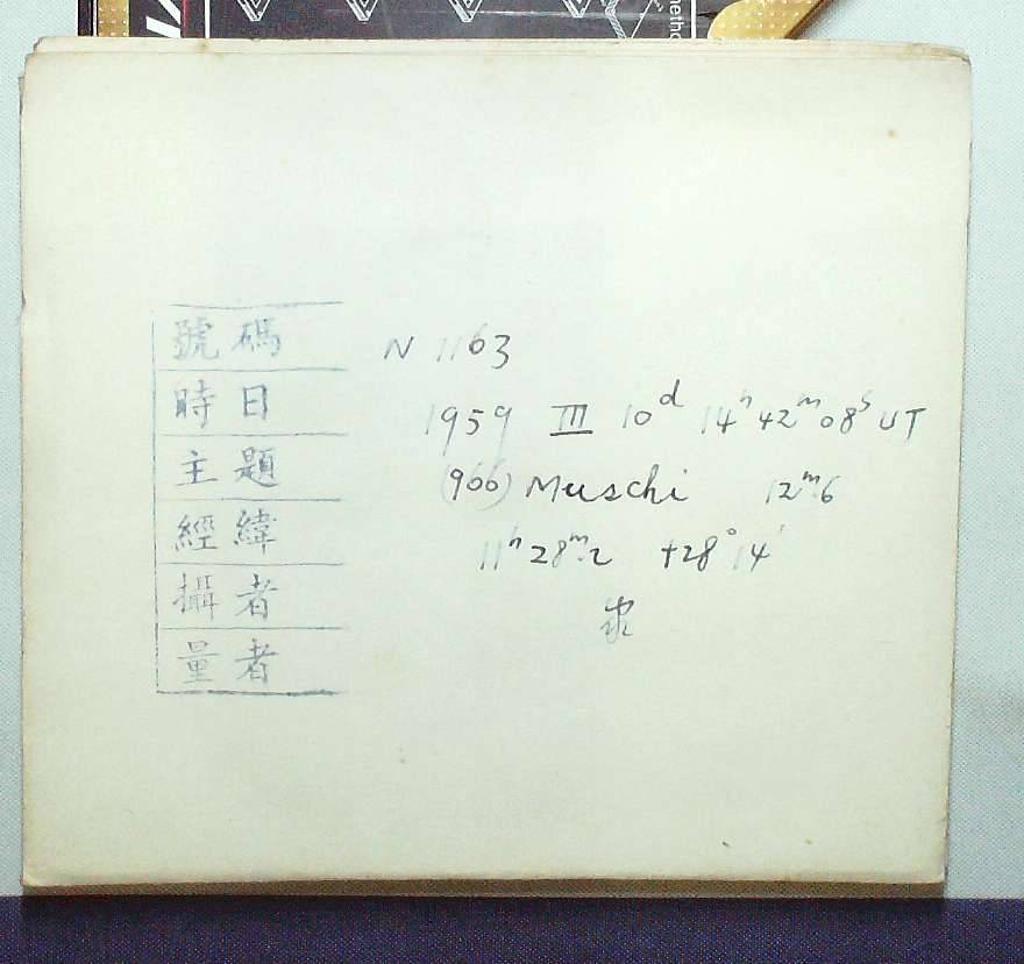 號碼 N 1163
時日 1959 III 10ᵈ 14ʰ 42ᵐ 08ˢ UT
主題 (966) Muschi 12ᵐ.6
經緯 11ʰ 28ᵐ.2 +28° 14'
攝者
量者